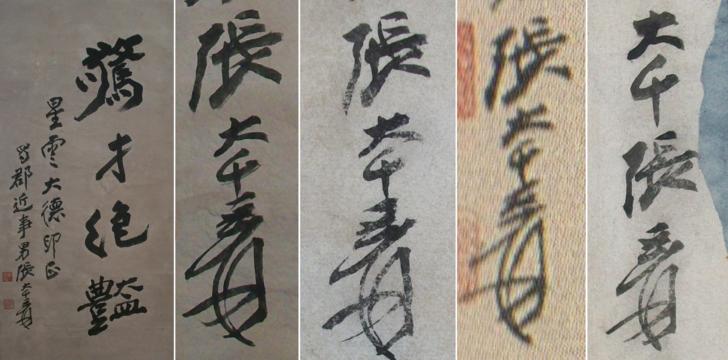 驚才絕豔
星雲大德印正
蜀郡近事男張大千爰
張大千爰
張大千爰
張大千爰
大千張爰